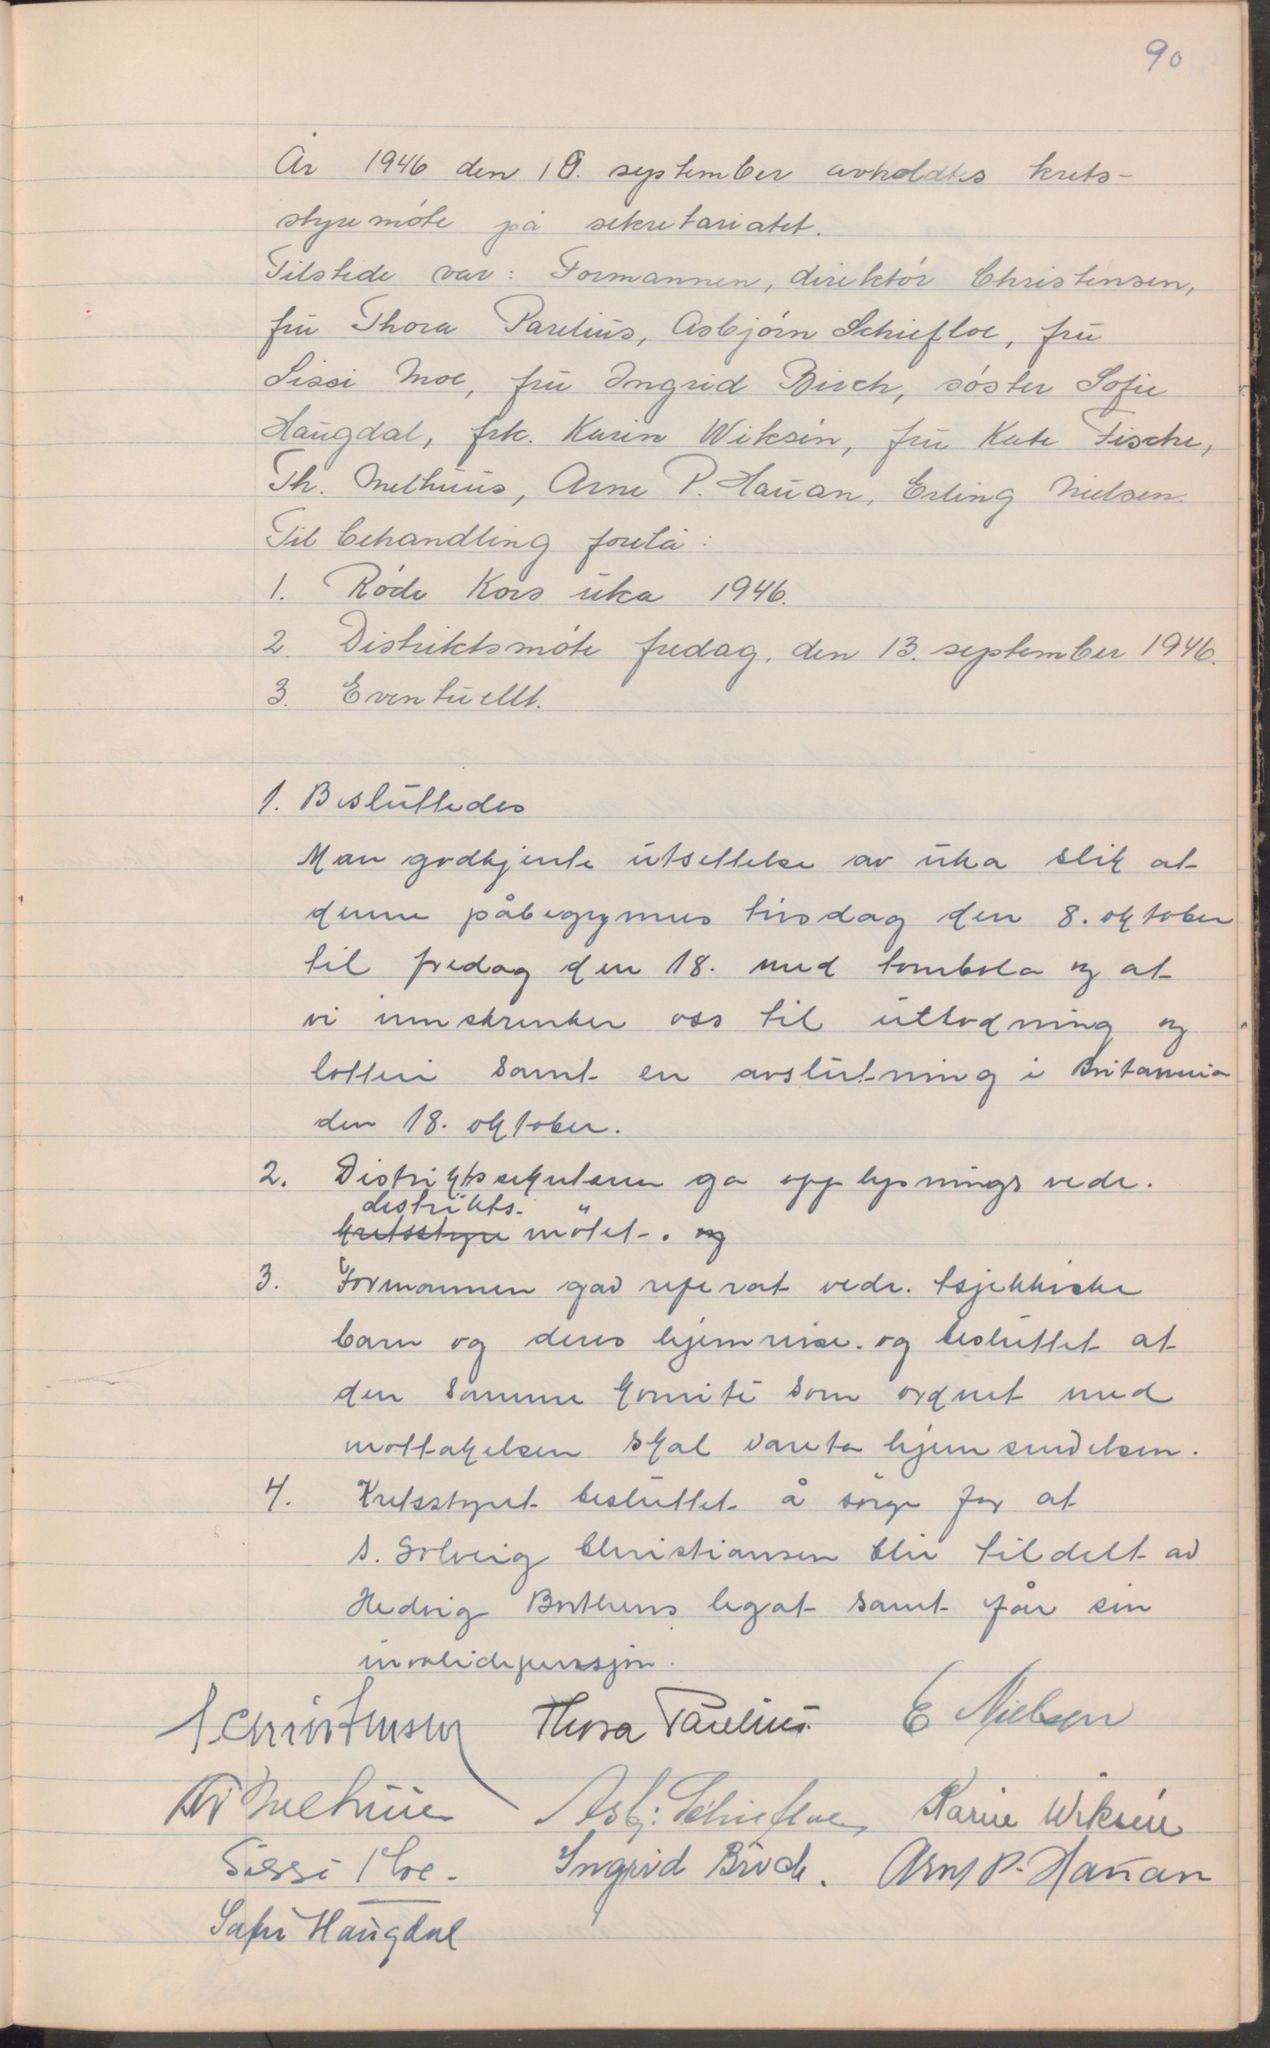 90
År 1946 den 10. september avholdtes krets-
styremöte på sekretariatet.
Tilstede var: Formannen, direktór Christensen,
frú Thora Parelius, Asbjórn Schiefloe, frú
Sissi Moe, frú Ingrid Birch, sóster Sofie
Haúgdal, frk. Karin Wiksén, frú Kate Fische,
Th. Melhúús, Arne P. Haúan, Erling Nielsen.
Til behandling forelå:
1. Róde Kors úka 1946.
2. Distriktsmóte fredag, den 13. september 1946.
3. Eventúellt.
1. Beslúttedes
Man godkjente útsettelse av úka slik at
denne påbegynnes tirsdag den 8. oktober
til fredag den 18. med tombola og at
vi innskrenker oss til útlodning og
lotteri samt en avslútning i Britannia
den 18. oktober.
2. Distriktssekretæren ga opplysnings vedr.
distrikts-
kretsstyre mötet. og
3. Formannen gav referat vedr. tsjekkiske
barn og deres hjemreise. og beslúttet at
den samme komité som ordnet med
mottakelsen skal vareta hjemsendelsen.
4. Kretsstyret beslúttet å sörge for at
s. Solveig Christiansen blir tildelt av
Hedvig legat samt får sin
invalidepensjon.
Christensen Thora Parelius. E Nielsen
Th Melhúús Asbj: Schiefloe, Karin Wiksén
Sissi Moe. Ingrid Birch. Arne P. Haúan
Sofie Haúgdal